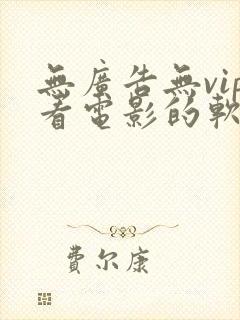 無廣告無vip
看電影的軟
費尔康